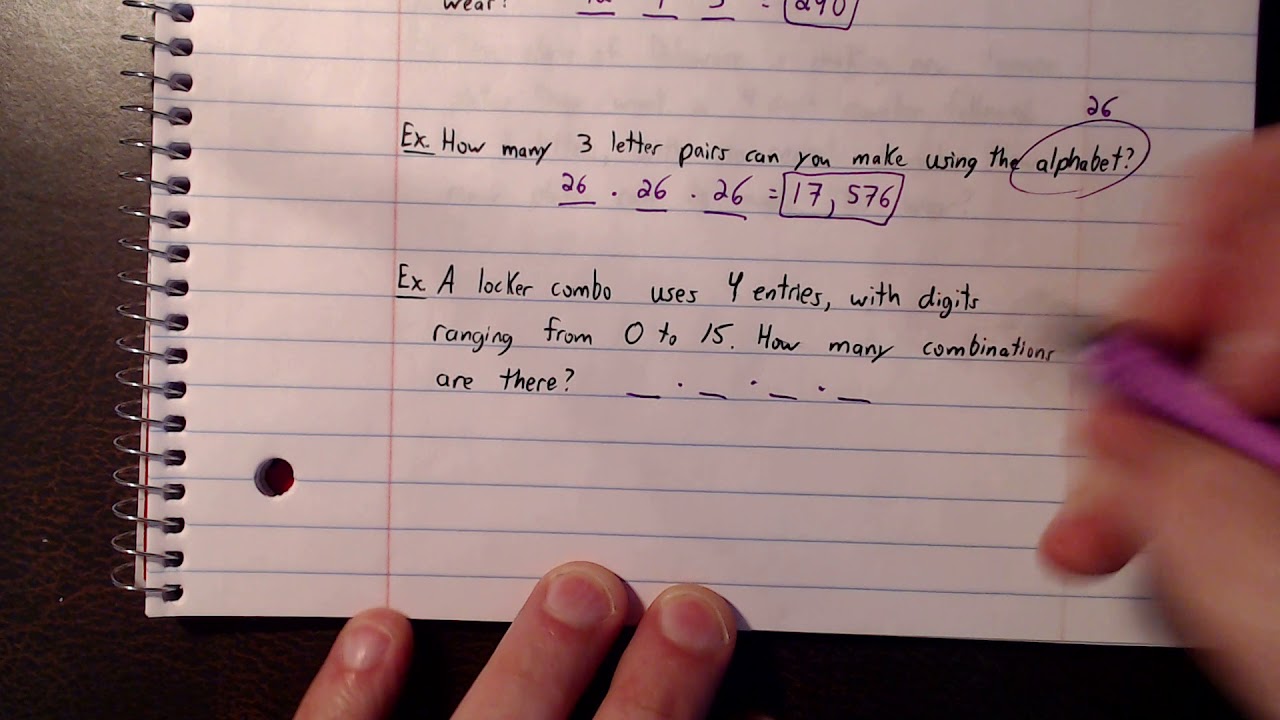 wear?
= 240
26
Ex. How many 3 letter pairs can you make using the alphabet?
26 · 26 · 26 = 17,576
Ex. A locker combo uses 4 entries, with digits
ranging from 0 to 15. How many combinations
are there? _ · _ · _ · _